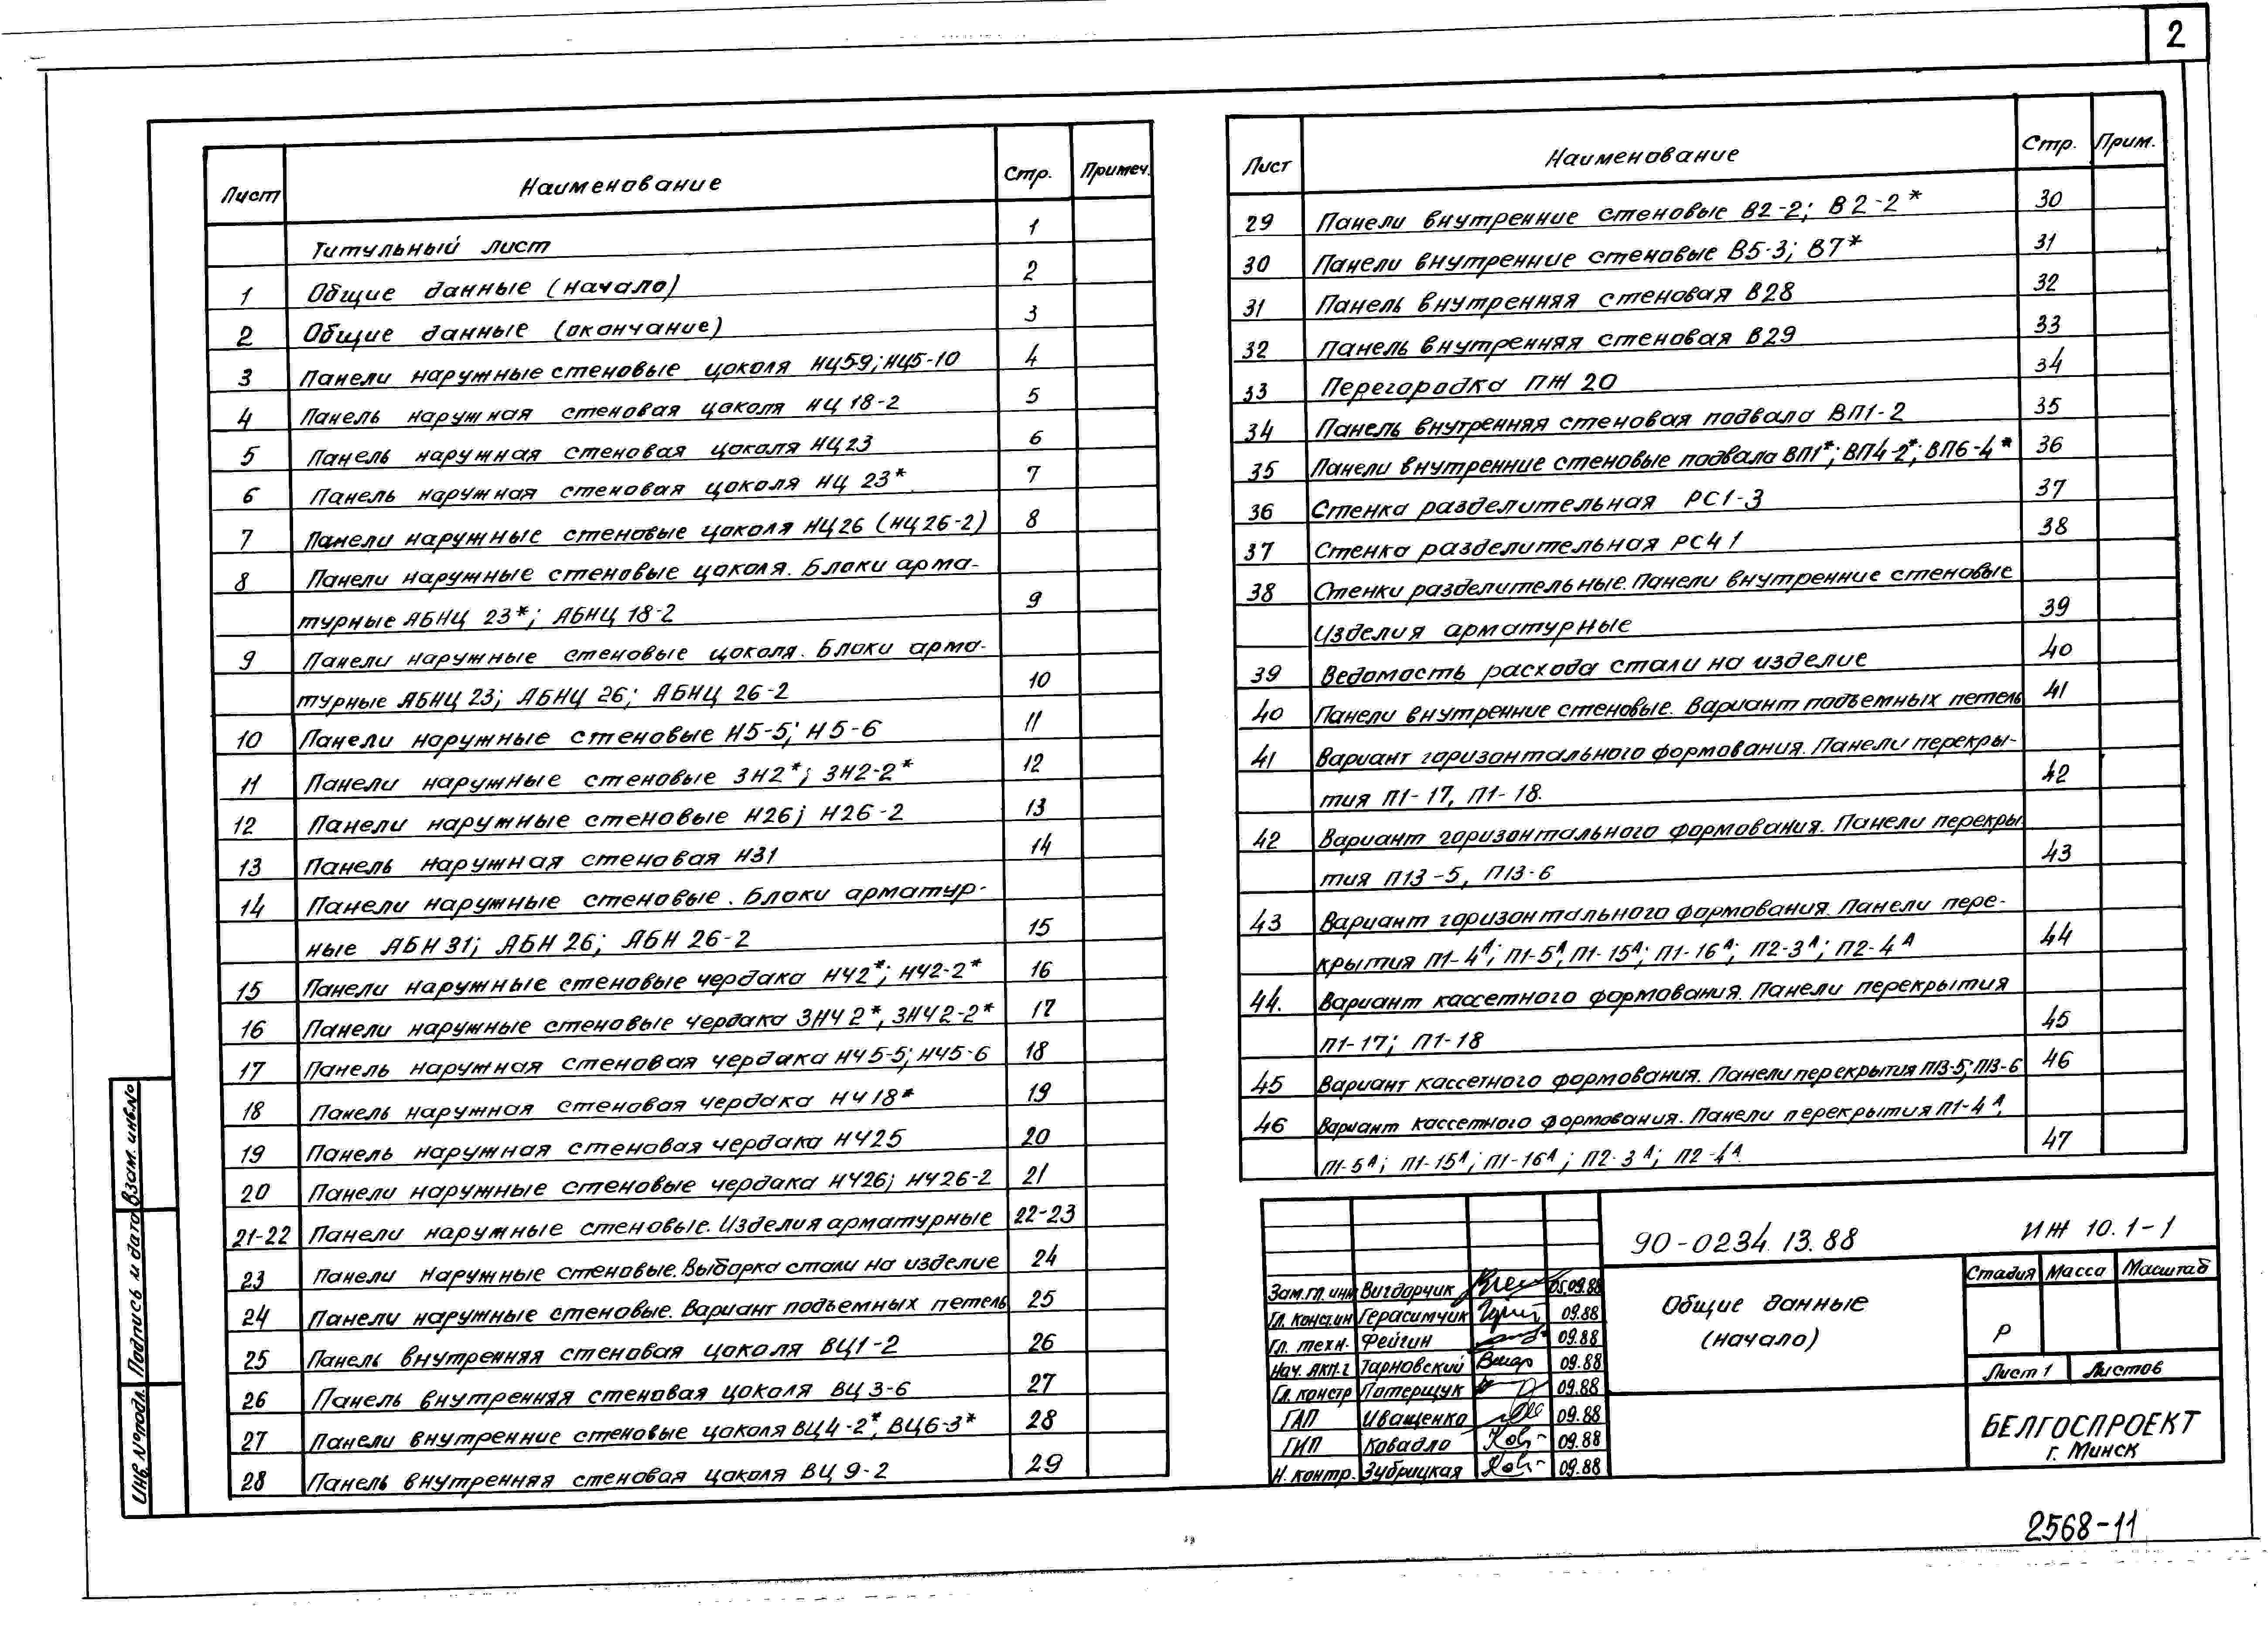 2
Лист Наименование Стр. Примеч.
Титульный лист 1
1 Общие данные (начало) 2
2 Общие данные (окончание) 3
3 Панели наружные стеновые цоколя НЦ5-9; НЦ5-10 4
4 Панель наружная стеновая цоколя НЦ 18-2 5
5 Панель наружная стеновая цоколя НЦ23 6
6 Панель наружная стеновая цоколя НЦ 23* 7
7 Панели наружные стеновые цоколя НЦ26 (НЦ26-2) 8
8 Панели наружные стеновые цоколя. Блоки арма-
турные АБНЦ 23*; АБНЦ 18-2 9
9 Панели наружные стеновые цоколя. Блоки арма-
турные АБНЦ 23; АБНЦ 26; АБНЦ 26-2 10
10 Панели наружные стеновые Н5-5; Н5-6 11
11 Панели наружные стеновые 3Н2*; 3Н2-2* 12
12 Панели наружные стеновые Н26; Н26-2 13
13 Панель наружная стеновая Н31 14
14 Панели наружные стеновые. Блоки арматур-
ные АБН 31; АБН 26; АБН 26-2 15
15 Панели наружные стеновые чердака НЧ2*; НЧ2-2* 16
16 Панели наружные стеновые чердака 3НЧ 2*, 3НЧ2-2* 17
17 Панель наружная стеновая чердака НЧ5-5; НЧ5-6 18
18 Панель наружная стеновая чердака НЧ18* 19
19 Панель наружная стеновая чердака НЧ25 20
20 Панели наружные стеновые чердака НЧ26; НЧ26-2 21
21-22 Панели наружные стеновые. Изделия арматурные 22-23
23 Панели наружные стеновые. Выборка стали на изделие 24
24 Панели наружные стеновые. Вариант подъемных петель 25
25 Панель внутренняя стеновая цоколя ВЦ1-2 26
26 Панель внутренняя стеновая цоколя ВЦ 3-6 27
27 Панели внутренние стеновые цоколя ВЦ4-2*, ВЦ6-3* 28
28 Панель внутренняя стеновая цоколя ВЦ 9-2 29
Лист Наименование Стр. Прим.
29 Панели внутренние стеновые В2-2; В2-2* 30
30 Панели внутренние стеновые В5-3; В7* 31
31 Панель внутренняя стеновая В28 32
32 Панель внутренняя стеновая В29 33
33 Перегородка ПЖ 20 34
34 Панель внутренняя стеновая подвала ВП1-2 35
35 Панели внутренние стеновые подвала ВП1*; ВП4-2*; ВП6-4* 36
36 Стенка разделительная РС1-3 37
37 Стенка разделительная РС41 38
38 Стенки разделительные. Панели внутренние стеновые
Изделия арматурные 39
39 Ведомость расхода стали на изделие 40
40 Панели внутренние стеновые. Вариант подъемных петель 41
41 Вариант горизонтального формования. Панели перекры-
тия П1-17, П1-18. 42
42 Вариант горизонтального формования. Панели перекры
тия П13-5, П13-6 43
43 Вариант горизонтального формования. Панели пере-
крытия П1-4А; П1-5А, П1-15А; П1-16А; П2-3А; П2-4А 44
44. Вариант кассетного формования. Панели перекрытия
П1-17; П1-18 45
45 Вариант кассетного формования. Панели перекрытия П13-5; П13-6 46
46 Вариант кассетного формования. Панели перекрытия П1-4А,
П1-5А; П1-15А; П1-16А; П2-3А; П2-4А. 47
90-0234.13.88 ИЖ 10.1-1
Зам.гл.инж Вигдорчик 05.09.88
Гл.констин Герасимчик 09.88
Гл. техн. Фейгин 09.88
Нач. АКМ-2 Тарновский 09.88
Гл. констр Потерщук 09.88
ГАП Иващенко 09.88
ГИП Ковадло 09.88
Н. контр. Зубрицкая 09.88
Общие данные
(начало)
Стадия Масса Масштаб
Р
Лист 1 Листов
БЕЛГОСПРОЕКТ
г. Минск
Взам. инв.№
Подпись и дата
Инв.№подл.
2568-11